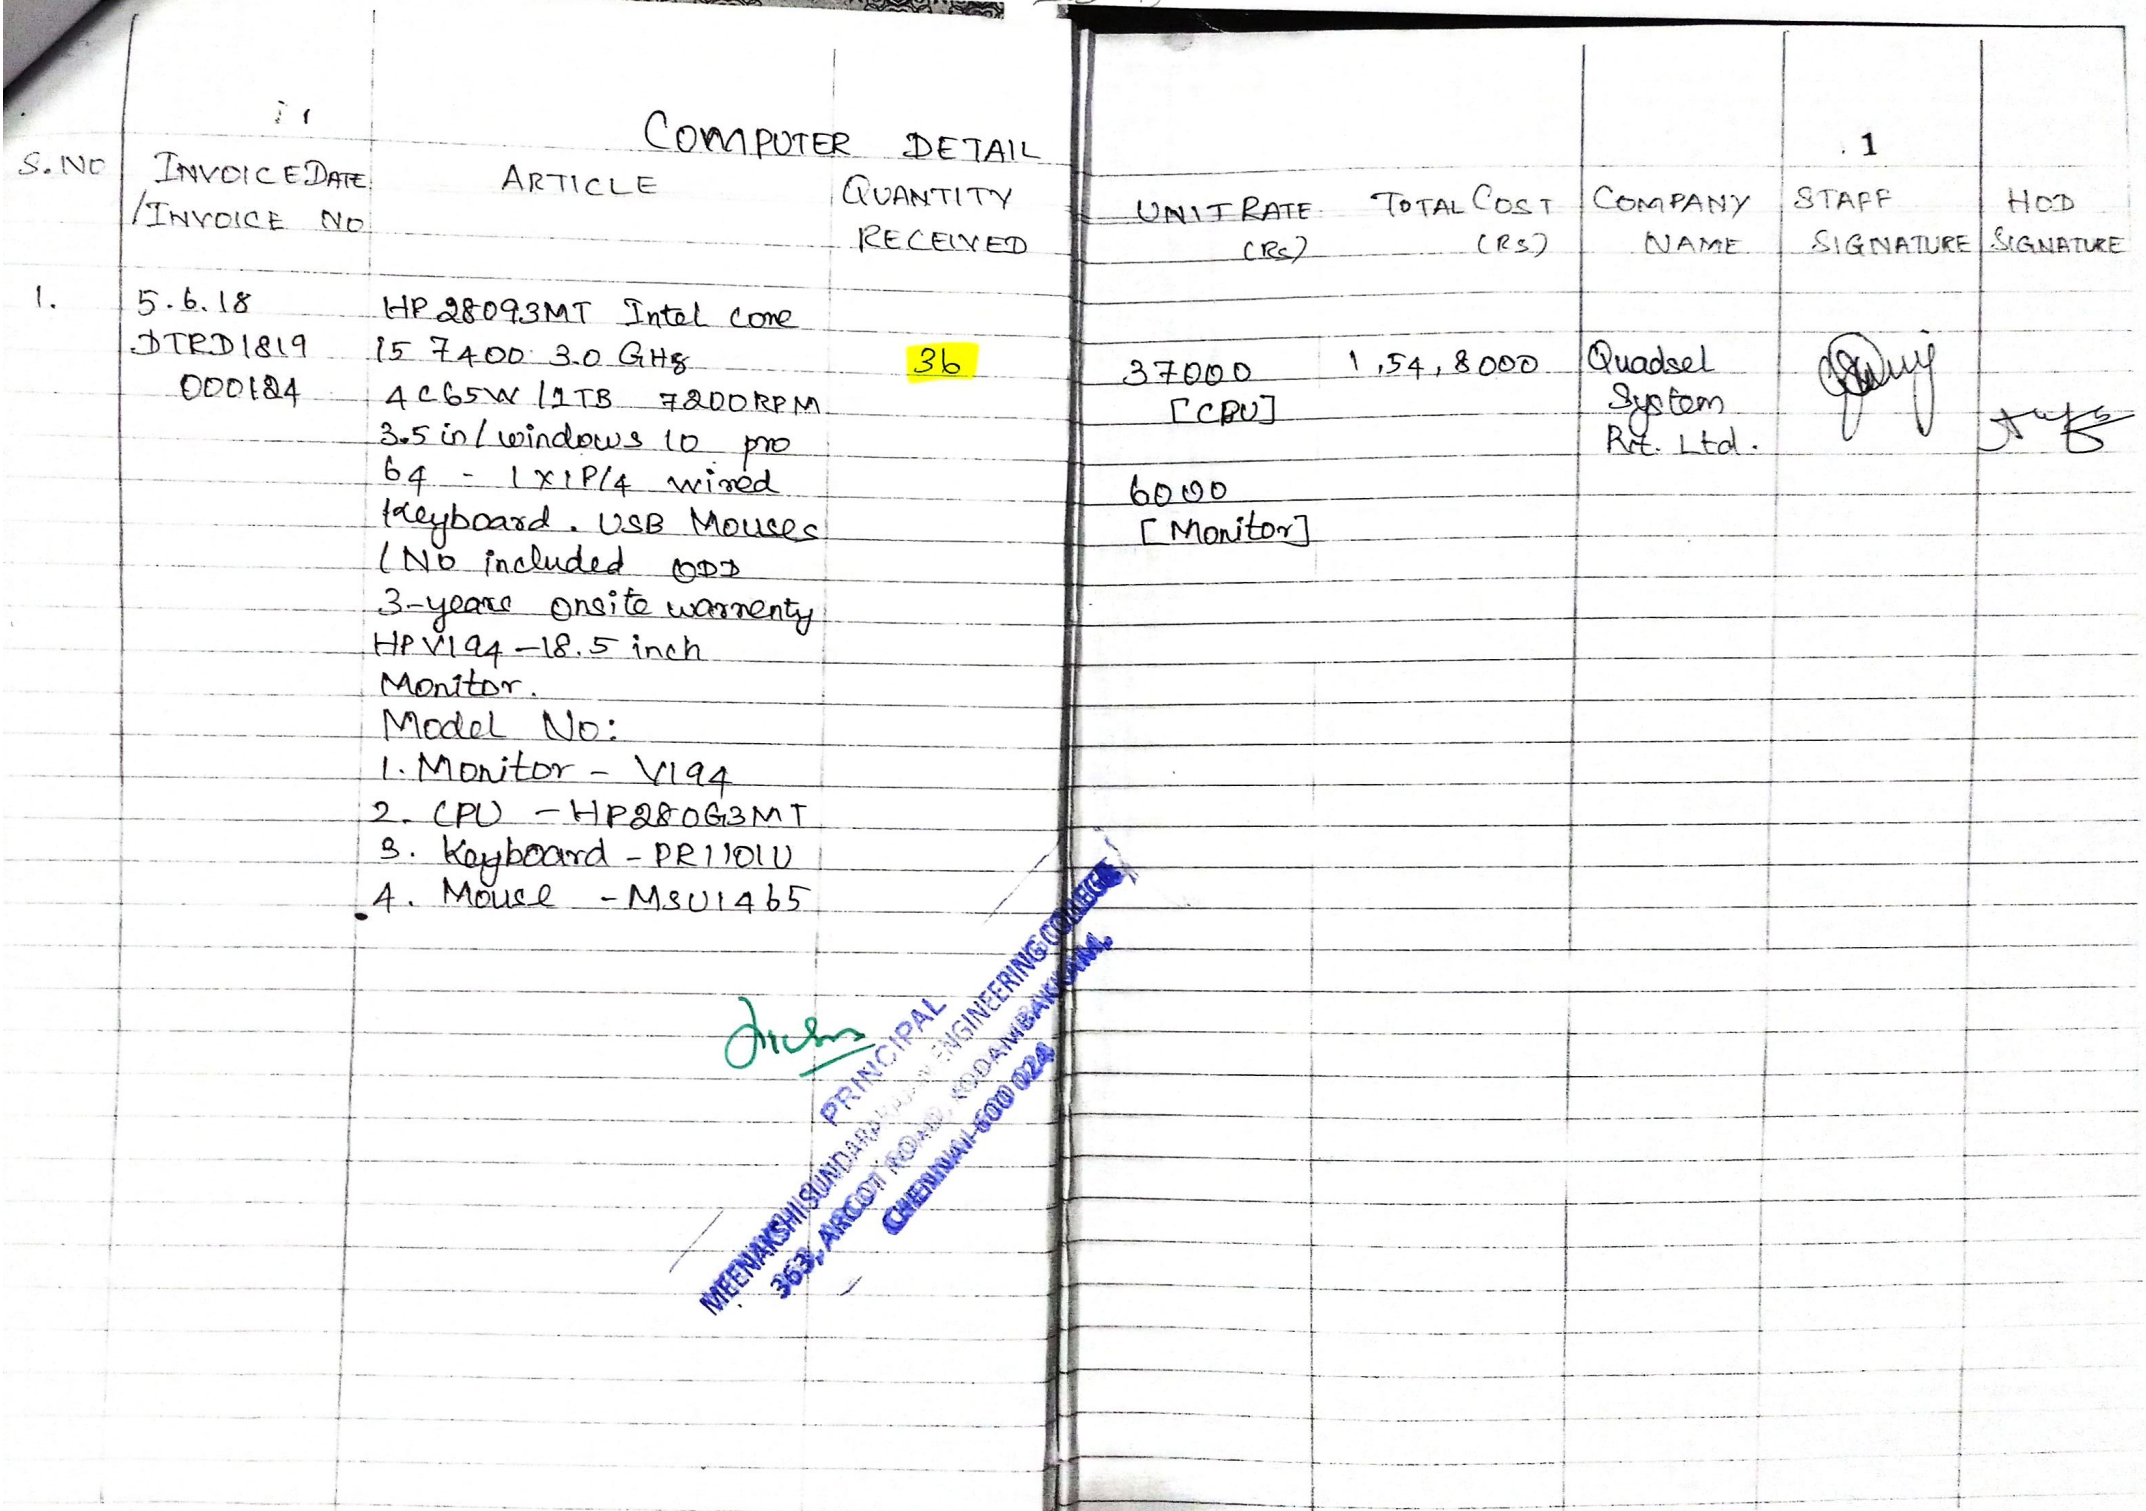 COMPUTER DETAIL
1
S.NO
INVOICE DATE
/INVOICE NO
ARTICLE
QUANTITY
RECEIVED
UNIT RATE
(RS)
TOTAL COST
(RS)
COMPANY
NAME
STAFF
SIGNATURE
HOD
SIGNATURE
1.
5.6.18
DTRD1819
000124
HP 28093MT Intel core
i5 7400 3.0 GHz
4C65W/1TB 7200RPM
3.5 in/windows 10 pro
64 - 1x1P/4 wired
Keyboard. USB Mouses
(No included ODD
3-years onsite warrenty
HP V194-18.5 inch
Monitor.
Model No:
1. Monitor - V194
2. CPU - HP280G3MT
3. Keyboard - PR1101U
4. Mouse - MSU1465
36
37000
[CPU]
6000
[Monitor]
1,54,8000
Quadsel
System
Pvt. Ltd.
PRINCIPAL
MEENAKSHI SUNDARARAJAN ENGINEERING COLLEGE
363, ARCOT ROAD, KODAMBAKKAM,
CHENNAI-600 024